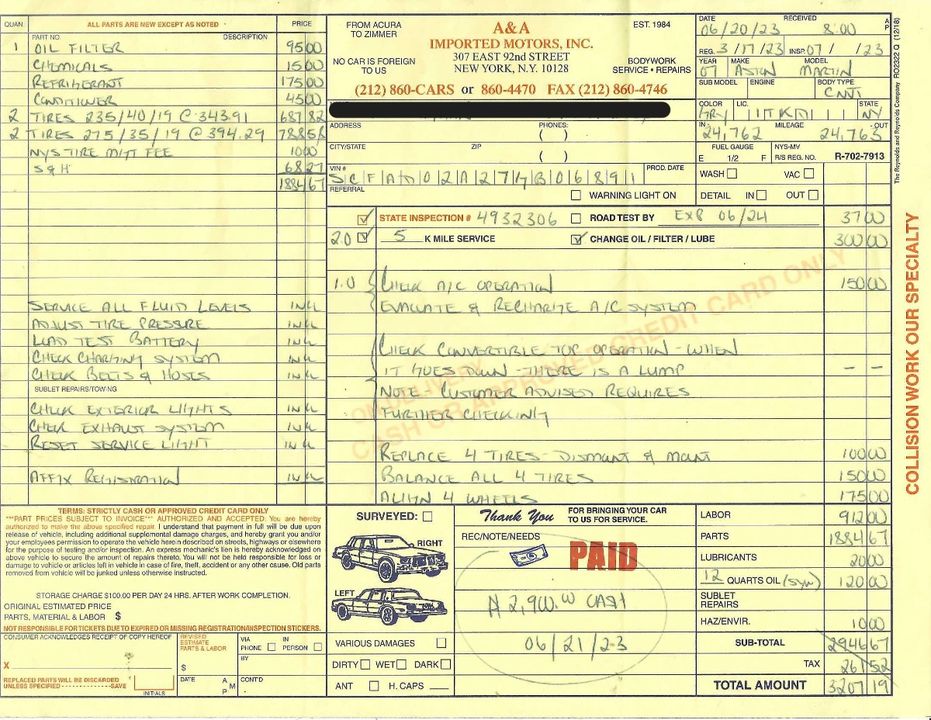 QUAN. ALL PARTS ARE NEW EXCEPT AS NOTED PRICE
PART NO. DESCRIPTION
1 OIL FILTER 95 00
CHEMICALS 15 00
REFRIGERANT 175 00
CONDITIONER 45 00
2 TIRES 235/40/19 @ 343.91 687 82
2 TIRES 275/35/19 @ 394.29 788 58
NYS TIRE MGT FEE 10 00
S & H 68 27
1884 67
SERVICE ALL FLUID LEVELS INCL
ADJUST TIRE PRESSURE INCL
LOAD TEST BATTERY INCL
CHECK CHARGING SYSTEM INCL
CHECK BELTS & HOSES INCL
SUBLET REPAIRS/TOWING
CHECK EXTERIOR LIGHTS INCL
CHECK EXHAUST SYSTEM INCL
RESET SERVICE LIGHT INCL
AFFIX REGISTRATION INCL
FROM ACURA TO ZIMMER
NO CAR IS FOREIGN TO US
A&A
IMPORTED MOTORS, INC.
307 EAST 92nd STREET
NEW YORK, N.Y. 10128
EST. 1984
BODYWORK
SERVICE • REPAIRS
(212) 860-CARS or 860-4470 FAX (212) 860-4746
ADDRESS PHONES:
( )
CITY/STATE ZIP
( )
VIN # PROD. DATE
SCFAD02A27GB06891
REFERRAL WARNING LIGHT ON
DATE RECEIVED A P
06/20/23 8:00
REG. 3/17/23 INSP. 07/ /23
YEAR MAKE MODEL
07 ASTON MARTIN
SUB MODEL ENGINE BODY TYPE
CNVT
COLOR LIC. STATE
GRY NY
IN MILEAGE OUT
24,762 24,765
FUEL GAUGE NYS-MV
E 1/2 F R/S REG. NO. R-702-7913
WASH VAC
DETAIL IN OUT
The Reynolds and Reynolds Company RO2322 Q (12/18)
STATE INSPECTION # 4932306 ROAD TEST BY EXP 06/24 37 00
2.0 5 K MILE SERVICE CHANGE OIL / FILTER / LUBE 300 00
1.0 CHECK A/C OPERATION 150 00
EVACUATE & RECHARGE A/C SYSTEM
CHECK CONVERTIBLE TOP OPERATION - WHEN
IT GOES DOWN - THERE IS A LUMP — —
NOTE CUSTOMER ADVISED REQUIRES
FURTHER CHECKING
REPLACE 4 TIRES - DISMOUNT & MOUNT 100 00
BALANCE ALL 4 TIRES 150 00
ALIGN 4 WHEELS 175 00
CASH OR APPROVED CREDIT CARD ONLY
COLLISION WORK OUR SPECIALTY
TERMS: STRICTLY CASH OR APPROVED CREDIT CARD ONLY
"**PART PRICES SUBJECT TO INVOICE"** AUTHORIZED AND ACCEPTED: You are hereby
authorized to make the above specified repair. I understand that payment in full will be due upon
release of vehicle, including additional supplemental damage charges, and hereby grant you and/or
your employees permission to operate the vehicle herein described on streets, highways or elsewhere
for the purpose of testing and/or inspection. An express mechanic's lien is hereby acknowledged on
above vehicle to secure the amount of repairs thereto. You will not be held responsible for loss or
damage to vehicle or articles left in vehicle in case of fire, theft, accident or any other cause. Old parts
removed from vehicle will be junked unless otherwise instructed.
STORAGE CHARGE $100.00 PER DAY 24 HRS. AFTER WORK COMPLETION.
ORIGINAL ESTIMATED PRICE
PARTS, MATERIAL & LABOR $
NOT RESPONSIBLE FOR TICKETS DUE TO EXPIRED OR MISSING REGISTRATION/INSPECTION STICKERS.
CONSUMER ACKNOWLEDGES RECEIPT OF COPY HEREOF
X
REPLACED PARTS WILL BE DISCARDED
UNLESS SPECIFIED SAVE
INITIALS
REVISED ESTIMATE PARTS & LABOR
$
VIA PHONE IN PERSON
BY
DATE A M P CONT'D
SURVEYED:
RIGHT
LEFT
VARIOUS DAMAGES
DIRTY WET DARK
ANT H. CAPS
Thank You FOR BRINGING YOUR CAR TO US FOR SERVICE.
REC/NOTE/NEEDS
PAID
2,900.00 CASH
06/21/23
LABOR 912 00
PARTS 1884 67
LUBRICANTS 20 00
12 QUARTS OIL (syn) 120 00
SUBLET REPAIRS
HAZ/ENVIR. 10 00
SUB-TOTAL 2946 67
TAX 261 52
TOTAL AMOUNT 3207 19